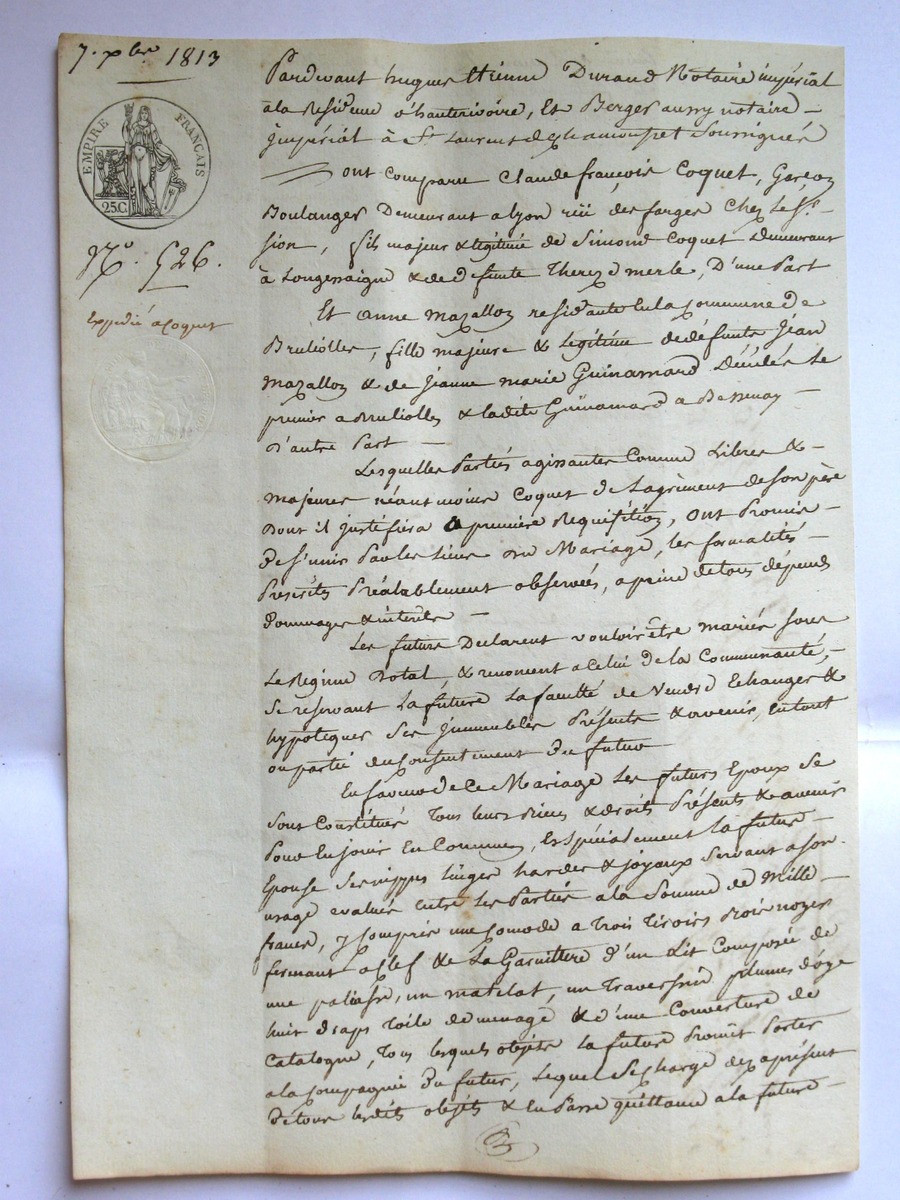 7. xbre 1813
EMPIRE FRANÇAIS
25.C.
N.o 526.
Expédié a Coquet
Pardevant hugues Etienne Durand Notaire impérial
a la Residence d'hauterivoire, Et Berger aussy notaire
jmpérial à St. Laurent de Chamousset Soussignés
ont comparu Claude françois Coquet, Garçon
Boulanger Demeurant a lyon rüe des farges Chez le Sr.
sion, fils majeur & légitime de Simond Coquet Demeurant
à Longessaigne & de defunte Thereze merle, D'une Part
Et anne mazallon residante en la Commune de
Brulioles, fille majeure & Légitime de défunts jean
mazallon & de jeanne marie Guinamard Décédés Le
premier a Bruliolles & ladite Guinamard a Bessenay
D'autre Part
Lesquelles Parties agissantes Comme Libres &
majeures néantmoins Coquet de Lagrément de son père
Dont il justifiera a premiere Requisition, ont Promis
de s'unir Par les liens du Mariage, les formalités
Prescrites Préalablement observées, a peine de tous dépends
Dommages & interets
Les futurs Declarent vouloir être mariés sous
Le Regime Dotal, & renoncent a Celui de la Communauté,
se reservant La future La faculté de Vendre Echanger &
hypotequer Ses jmmeubles Présents & avenir, en tout
ou partie du Consentement du futur
En faveur de Ce Mariage Les futurs Epoux se
sont Constitués Tous leurs Biens & droits Présents & avenir
Pour En jouir En Commun, Et spécialement La future
Epouse Ses nippes linges hardes & joyaux servant a son
usage evalués Entre Les Parties a la Somme de Mille
francs, y Compris une Comode a Trois Tiroirs Bois noyer
fermant a Clef & La Garniture d'un Lit Composée de
une paliasse, un matelat, un Traversin plumes d'oye
huit draps Toile de menage & d'une Couverture de
Catalogne, Tous lesquels objets La future Promet Porter
a la Compagnie du futur, Lequel Se charge des aprésent
de tous lesdits objets & En Passe quittance a la future